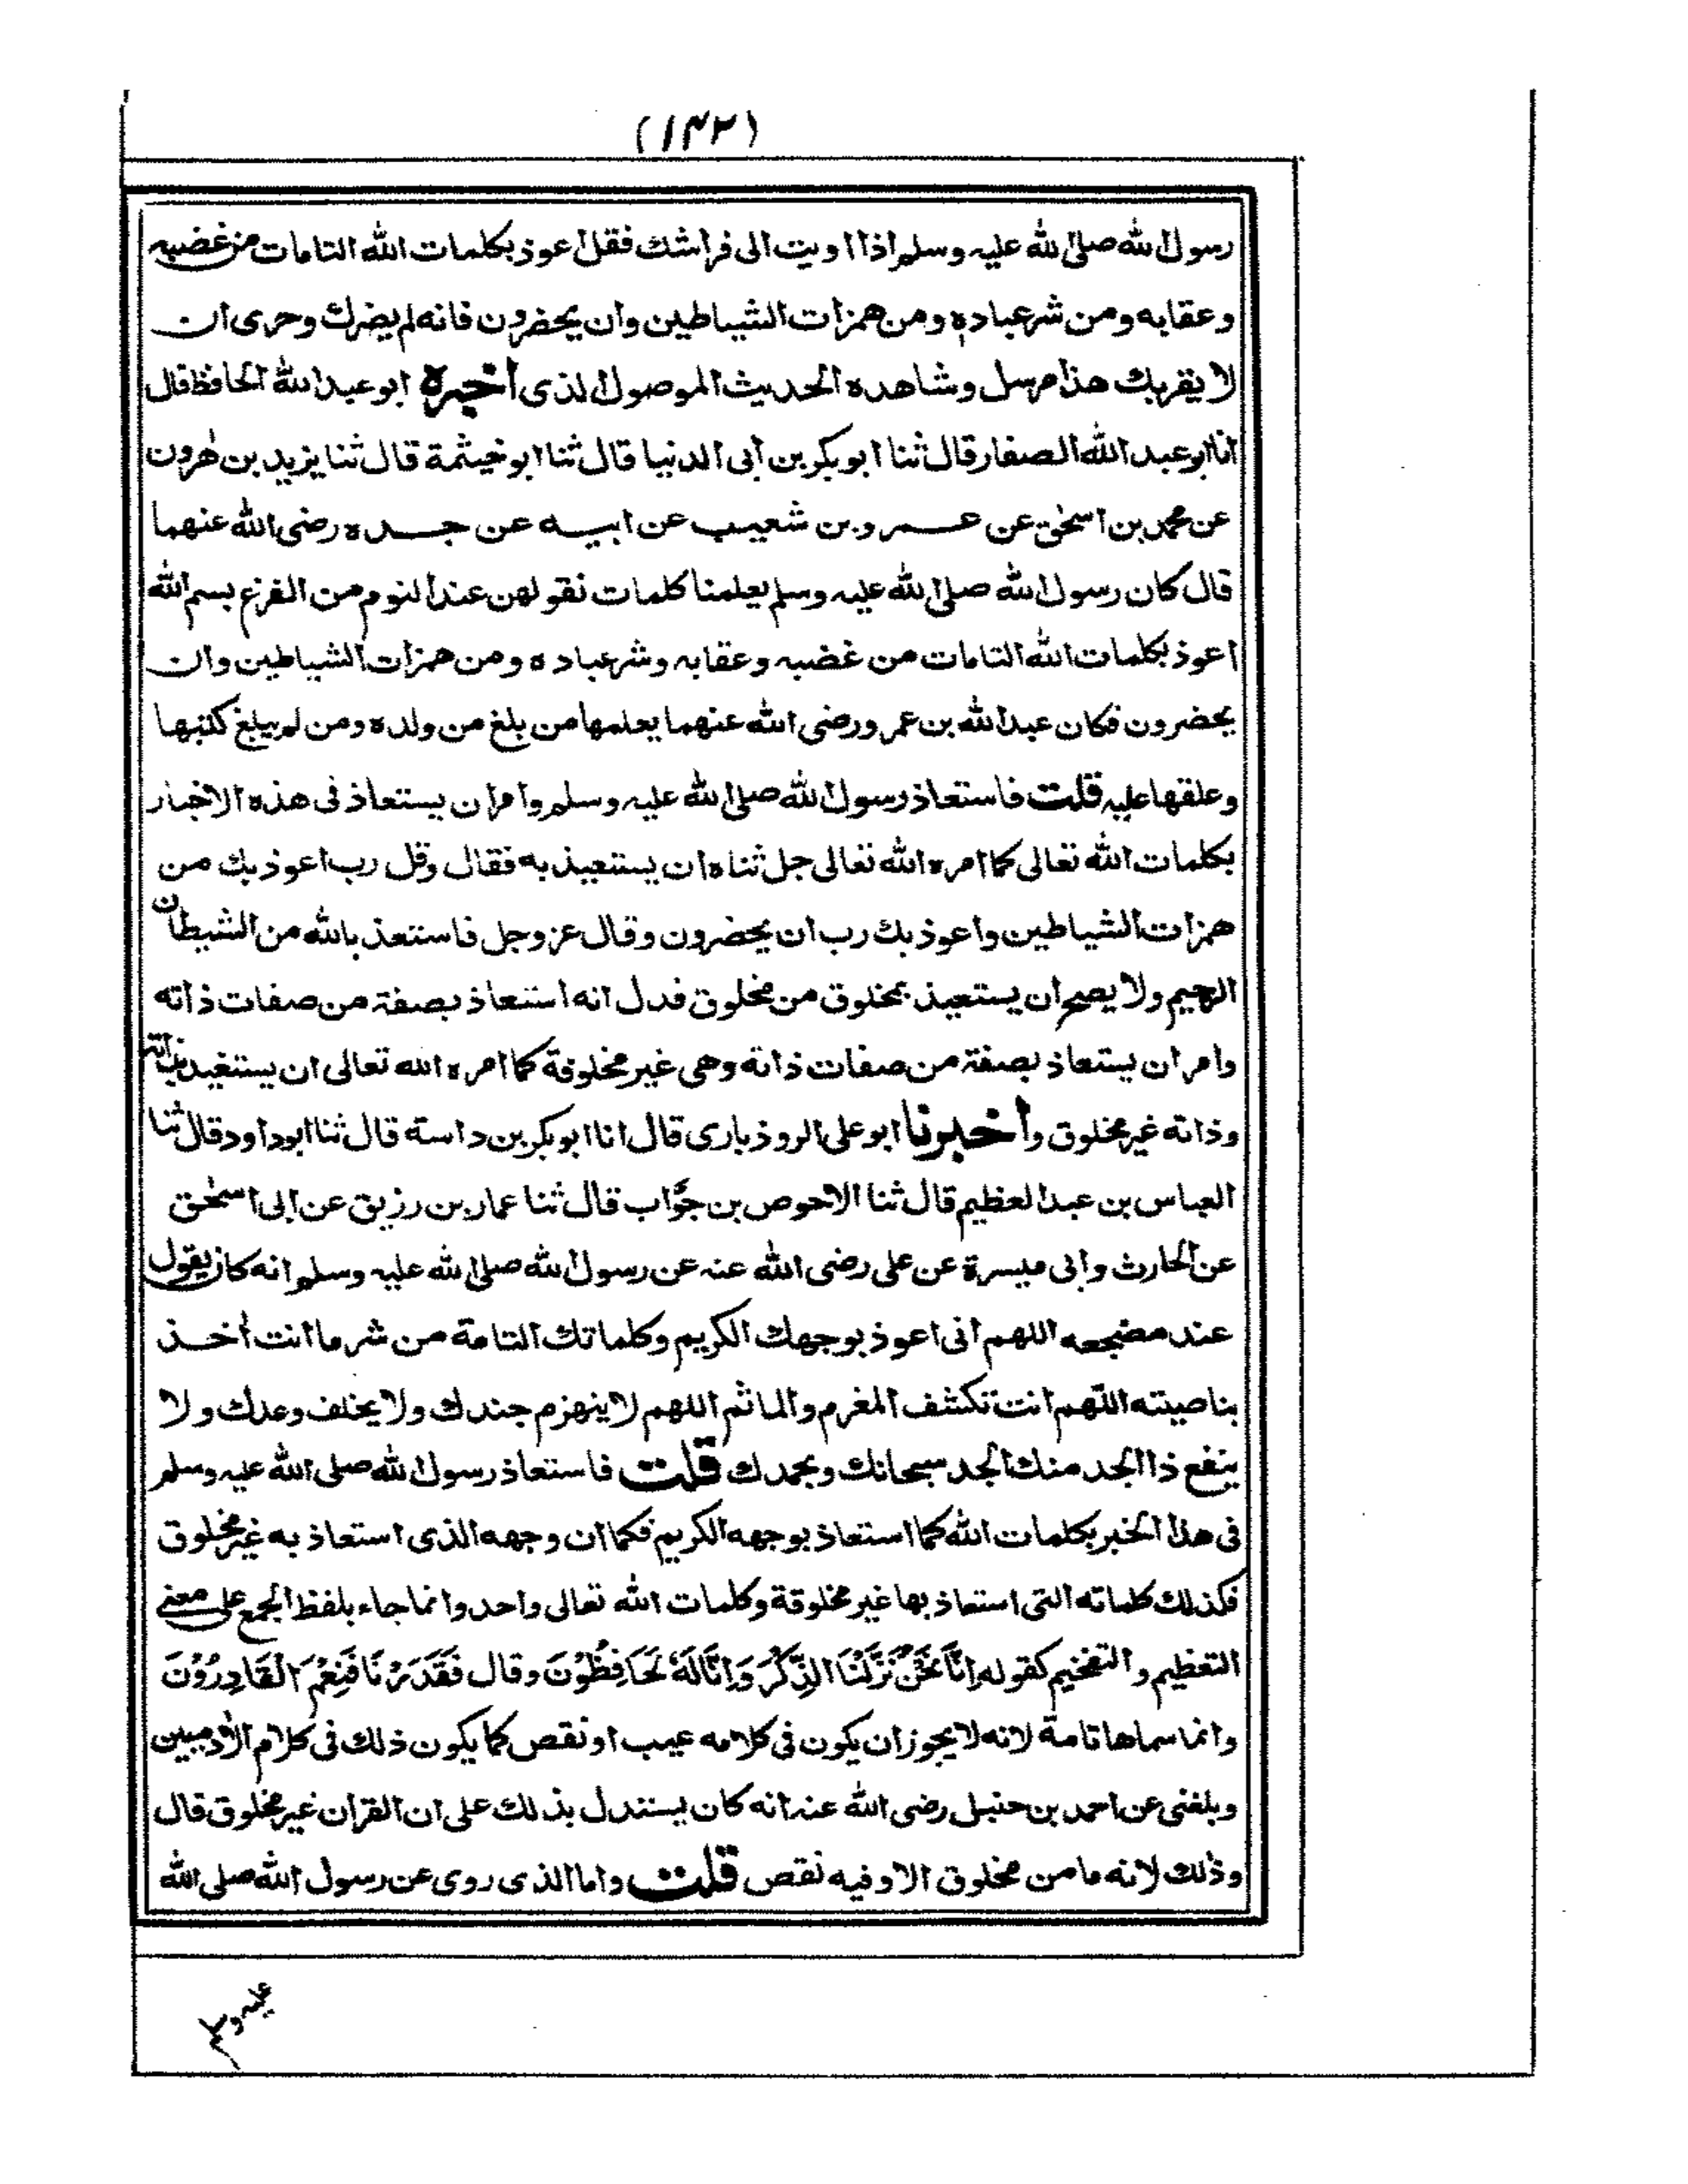 (١٤٢)
رسول الله صلى الله عليه وسلم اذا اويت الى فراشك فقل اعوذ بكلمات الله التامات من غضبه
وعقابه ومن شر عباده ومن همزات الشياطين وان يحضرون فانه لم يضرك وحرى ان
لا يقربك هذا مرسل وشاهده الحديث الموصول الذى أخبره ابو عبد الله الحافظ قال
انا ابو عبد الله الصفار قال ثنا ابو بكر بن أبى الدنيا قال ثنا ابو خيثمة قال ثنا يزيد بن هٰرون
عن محمد بن اسحٰق عن عمرو بن شعيب عن ابيه عن جده رضى الله عنهما
قال كان رسول الله صلى الله عليه وسلم يعلمنا كلمات نقولهن عند النوم من الفزع بسم الله
اعوذ بكلمات الله التامات من غضبه وعقابه وشر عباده ومن همزات الشياطين وان
يحضرون فكان عبد الله بن عمرو رضى الله عنهما يعلمها من بلغ من ولده ومن لم يبلغ كتبها
وعلقها عليه قلت فاستعاذ رسول الله صلى الله عليه وسلم وامر ان يستعاذ فى هذه الاخبار
بكلمات الله تعالى كما امره الله تعالى جل ثناه ان يستعيذ به فقال وقل رب اعوذ بك من
همزات الشياطين واعوذ بك رب ان يحضرون وقال عز وجل فاستعذ بالله من الشيطان
الرجيم ولا يصح ان يستعيذ بمخلوق من مخلوق فدل انه استعاذ بصفة من صفات ذاته
وامر ان يستعاذ بصفة من صفات ذاته وهى غير مخلوقة كما امره الله تعالى ان يستعيذ بذاته
وذاته غير مخلوق وأخبرنا ابو على الروذبارى قال انا ابو بكر بن داسته قال ثنا ابو داود قال ثنا
العباس بن عبد العظيم قال ثنا الاحوص بن جوَّاب قال ثنا عمار بن رزيق عن ابى اسحٰق
عن الحارث وابى ميسرة عن على رضى الله عنه عن رسول الله صلى الله عليه وسلم انه كان يقول
عند مضجعه اللهم انى اعوذ بوجهك الكريم وكلماتك التامة من شر ما انت أخذ
بناصيته اللّهم انت تكشف المغرم والماثم اللهم لا ينهزم جندك ولا يخلف وعدك ولا
ينفع ذا الجد منك الجد سبحانك وبحمدك قلت فاستعاذ رسول الله صلى الله عليه وسلم
فى هذا الخبر بكلمات الله كما استعاذ بوجهه الكريم فكما ان وجهه الذى استعاذ به غير مخلوق
فكذلك كلماته التى استعاذ بها غير مخلوقة وكلمات الله تعالى واحد وانما جاء بلفظ الجمع على معنى
التعظيم والتفخيم كقوله اِنَّا نَحْنُ نَزَّلْنَا الذِّكْرَ وَاِنَّا لَهٗ لَحَافِظُوْنَ وقال فَقَدَرْنَا فَنِعْمَ الْقَادِرُوْنَ
وانما سماها تامة لانه لا يجوز ان يكون فى كلامه عيب او نقص كما يكون ذلك فى كلام الأدميين
وبلغنى عن احمد بن حنبل رضى الله عنه انه كان يستدل بذلك على ان القران غير مخلوق قال
وذلك لانه ما من مخلوق الا وفيه نقص قلت واما الذى روى عن رسول الله صلى الله
عليه وسلم